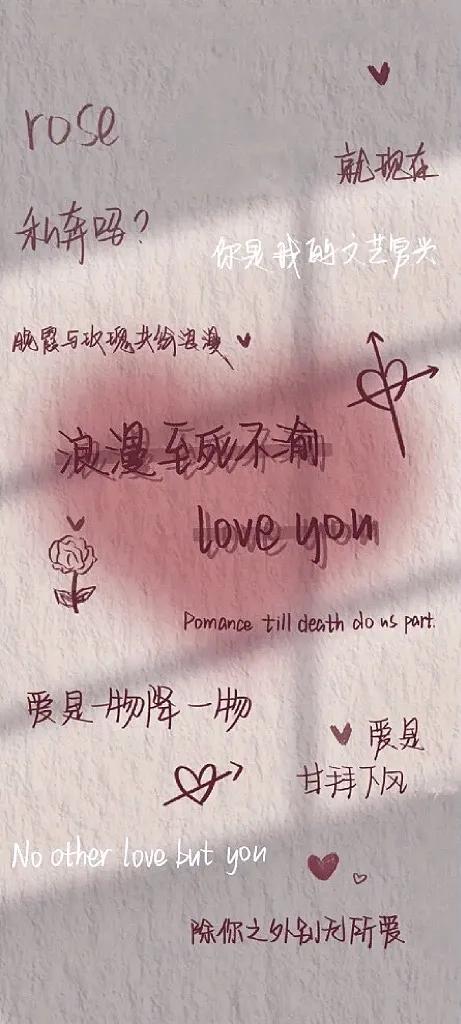 rose
就现在
私奔吗?
你是我的文艺冒尖
晚霞与玫瑰共绘浪漫
浪漫至死不渝
love you
Pomance till death do us part.
爱是一物降一物
爱是
甘拜下风
No other love but you
除你之外别无所爱